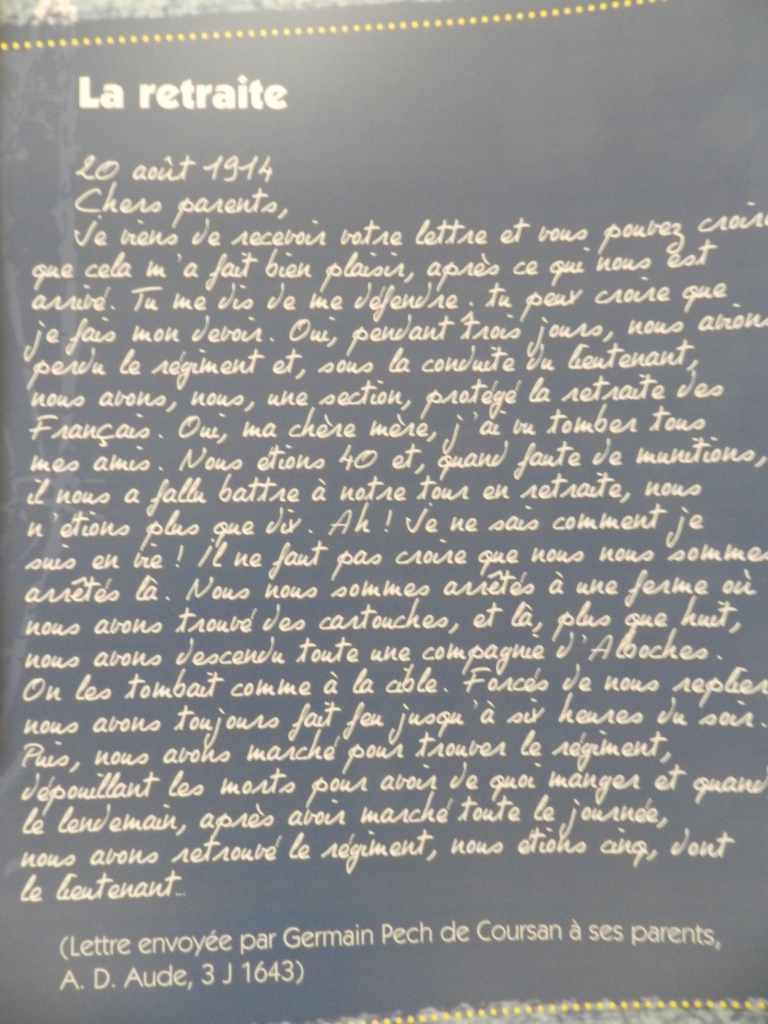 La retraite
20 août 1914
Chers parents,
Je viens de recevoir votre lettre et vous pouvez croire
que cela m'a fait bien plaisir, après ce qui nous est
arrivé. Tu me dis de me défendre, tu peux croire que
je fais mon devoir. Oui, pendant trois jours, nous avions
perdu le régiment et, sous la conduite du lieutenant,
nous avons, nous, une section, protégé la retraite des
Français. Oui, ma chère mère, j'ai vu tomber tous
mes amis. Nous étions 40 et, quand faute de munitions,
il nous a fallu battre à notre tour en retraite, nous
n'étions plus que dix. Ah ! Je ne sais comment je
suis en vie ! Il ne faut pas croire que nous nous sommes
arrêtés là. Nous nous sommes arrêtés à une ferme où
nous avons trouvé des cartouches, et là, plus que huit,
nous avons descendu toute une compagnie d'Alboches.
On les tombait comme à la cible. Forcés de nous replier
nous avons toujours fait feu jusqu'à six heures du soir.
Puis, nous avons marché pour trouver le régiment,
dépouillant les morts pour avoir de quoi manger et quand
le lendemain, après avoir marché toute le journée,
nous avons retrouvé le régiment, nous étions cinq, dont
le lieutenant...
(Lettre envoyée par Germain Pech de Coursan à ses parents,
A. D. Aude, 3 J 1643)